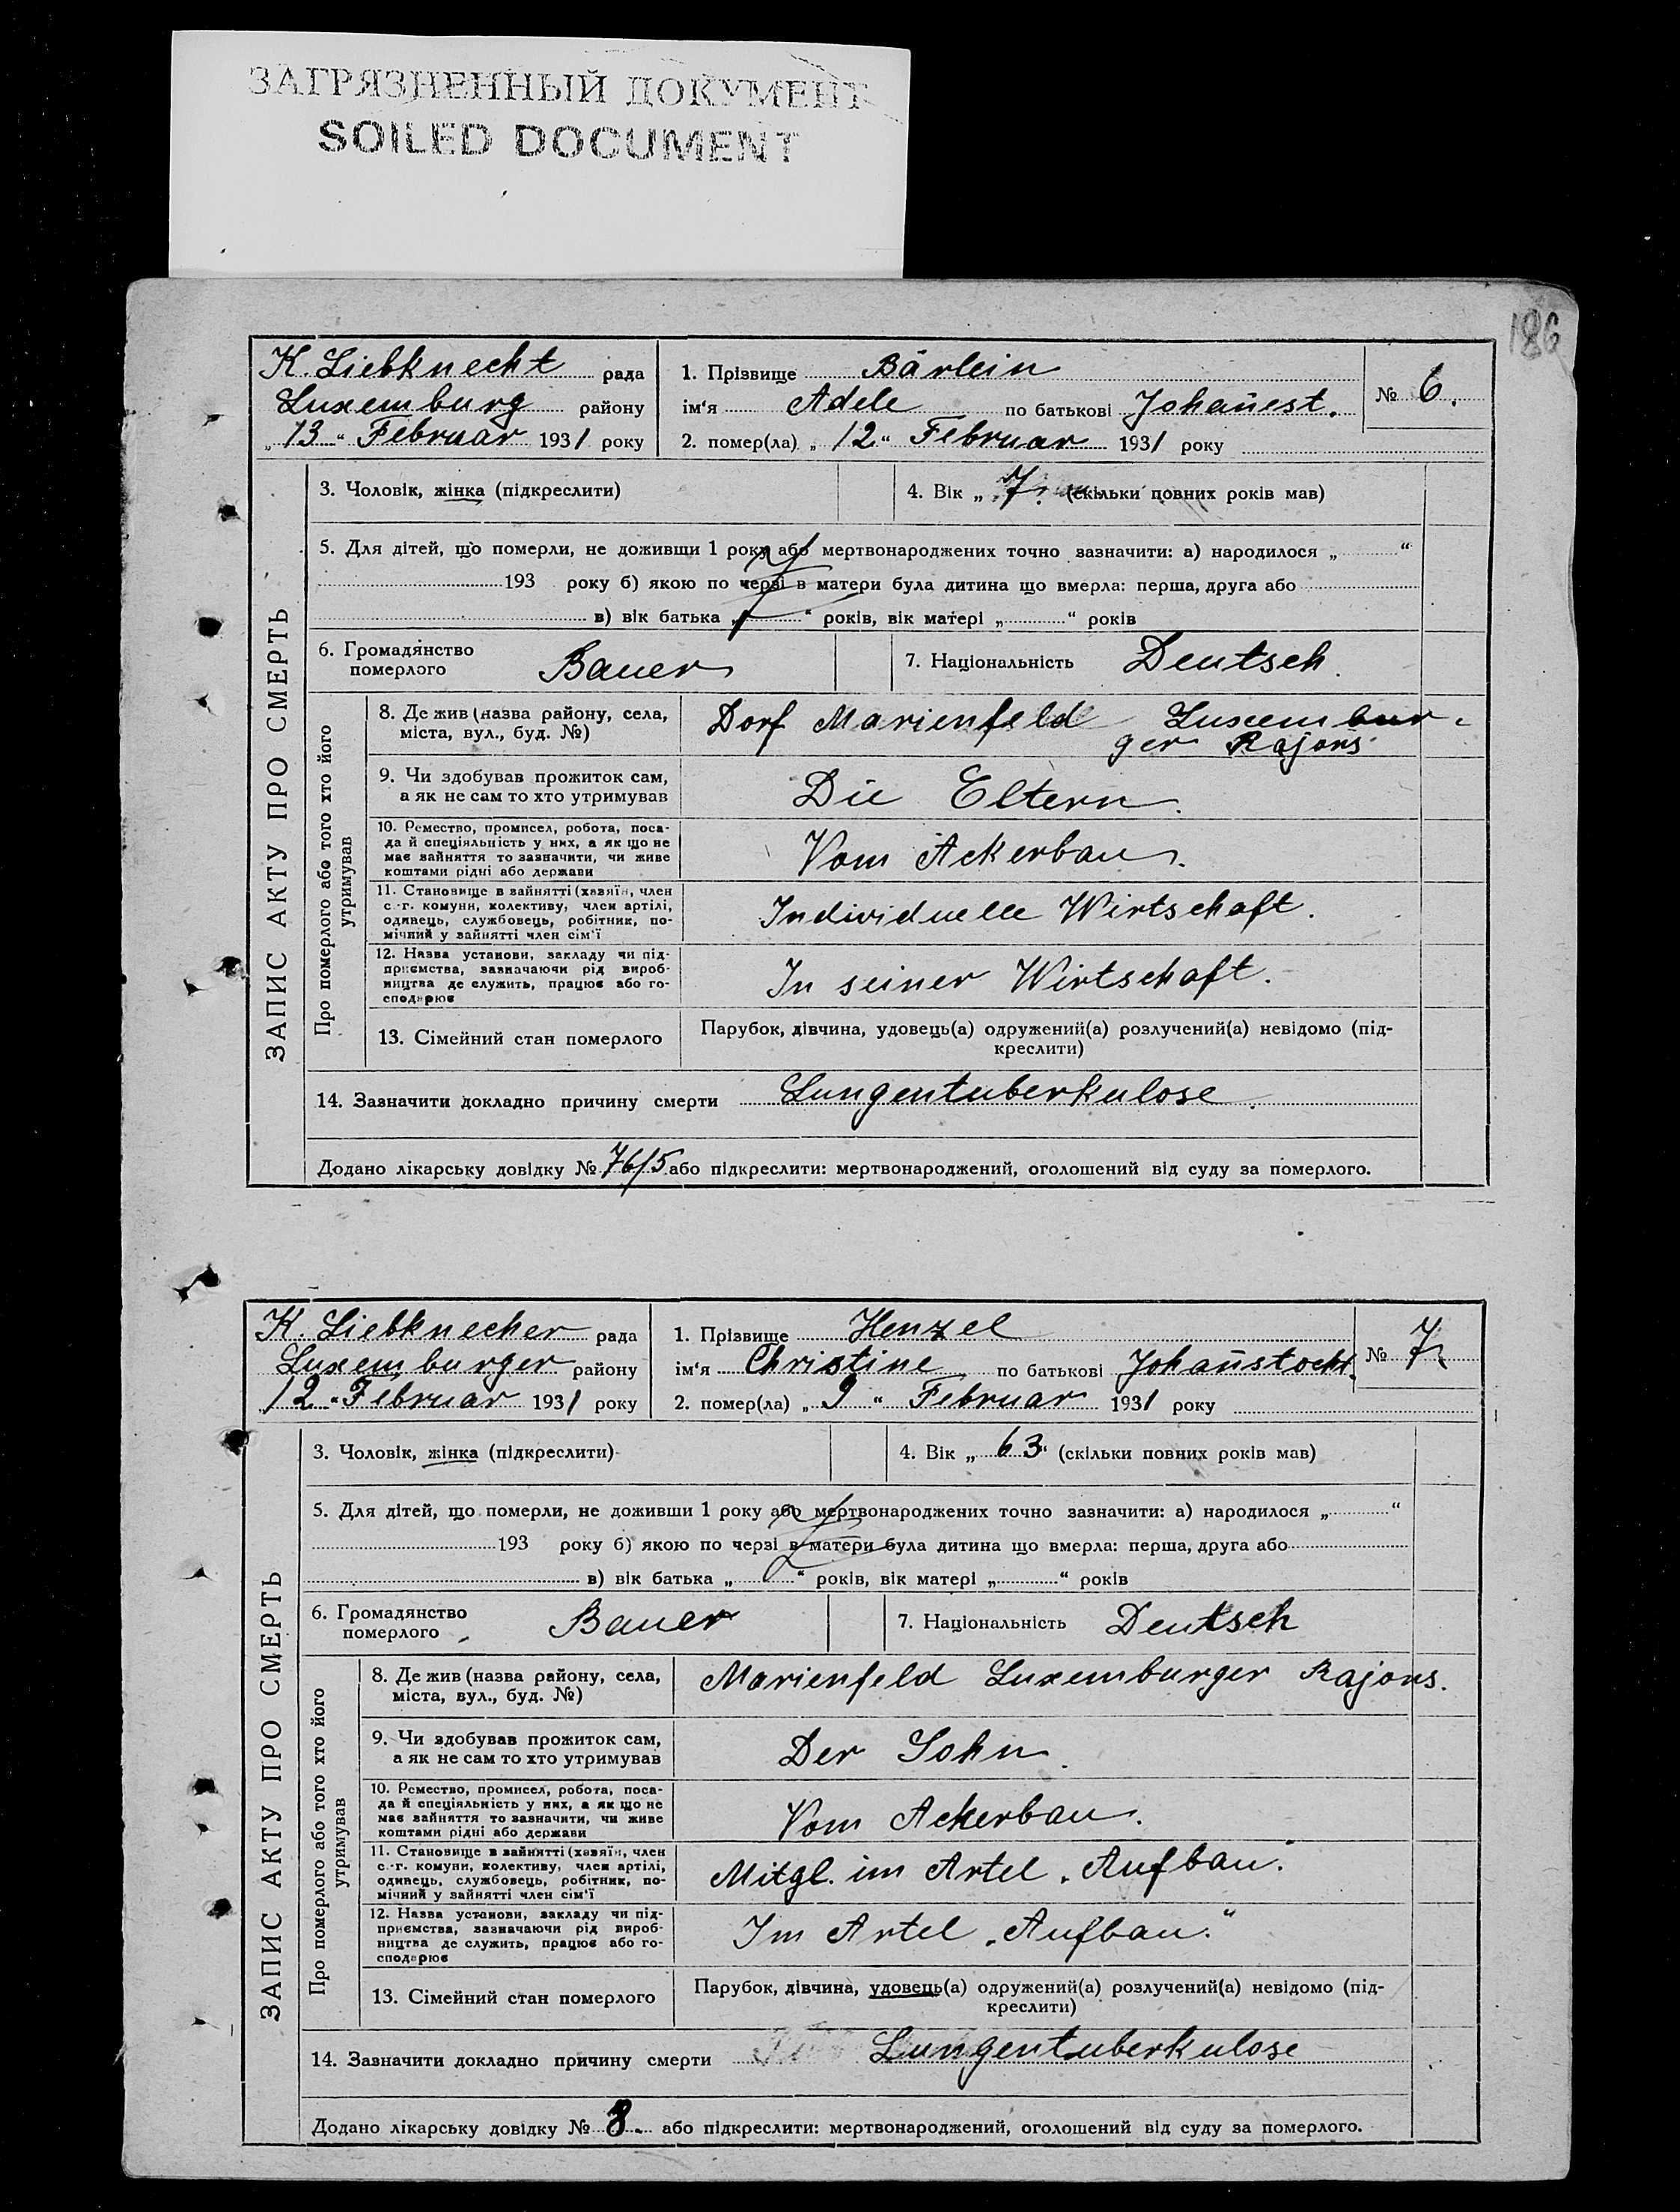 ЗАГРЯЗНЕННЫЙ ДОКУМЕНТ
SOILED DOCUMENT
186
K. Liebknecht рада
Luxemburg району
„13“ Februar 1931 року
1. Прізвище Bärlein
ім‘я Adele по батькові Johan̄est.
2. помер(ла) „12“ Februar 1931 року
№ 6.
ЗАПИС АКТУ ПРО СМЕРТЬ
3. Чоловік, жінка (підкреслити)
4. Вік „7 (скільки повних років мав)
5. Для дітей, що померли, не доживши 1 року або мертвонароджених точно зазначити: а) народилося „ “
193 року б) якою по черзі в матери була дитина що вмерла: перша, друга або
в) вік батька „ “ років, вік матері „ “ років
6. Громадянство
померлого Bauer
7. Національність Deutsch.
Про померлого або того хто його
утримував
8. Де жив (назва району, села,
міста, вул., буд. №)
Dorf Marienfeld Luxembur-
ger Rajons
9. Чи здобував прожиток сам,
а як не сам то хто утримував
Die Eltern.
10. Ремество, промисел, робота, поса-
да й спеціяльність у них, а як що не
має зайняття то зазначити, чи живе
коштами рідні або держави
Vom Ackerbau.
11. Становище в зайнятті (хазяїн, член
с.-г. комуни, колективу, член артілі,
одинець, службовець, робітник, по-
мічний у зайнятті член сім'ї
Individuelle Wirtschaft.
12. Назва установи, закладу чи під-
приємства, зазначаючи рід вироб-
ництва де служить, працює або го-
сподарює
In seiner Wirtschaft.
13. Сімейний стан померлого
Парубок, дівчина, удовець(а) одружений(а) розлучений(а) невідомо (під-
креслити)
14. Зазначити докладно причину смерти Lungentuberkulose.
Додано лікарську довідку № 76/5 або підкреслити: мертвонароджений, оголошений від суду за померлого.
K. Liebknecher рада
Luxemburger району
„12“ Februar 1931 року
1. Прізвище Henzel
ім‘я Christine по батькові Johan̄stocht.
2. помер(ла) „9“ Februar 1931 року
№ 7
ЗАПИС АКТУ ПРО СМЕРТЬ
3. Чоловік, жінка (підкреслити)
4. Вік „63“ (скільки повних років мав)
5. Для дітей, що померли, не доживши 1 року або мертвонароджених точно зазначити: а) народилося „ “
193 року б) якою по черзі в матери була дитина що вмерла: перша, друга або
в) вік батька „ “ років, вік матері „ “ років
6. Громадянство
померлого Bauer
7. Національність Deutsch
Про померлого або того хто його
утримував
8. Де жив (назва району, села,
міста, вул., буд. №)
Marienfeld Luxemburger Rajons.
9. Чи здобував прожиток сам,
а як не сам то хто утримував
Der Sohn.
10. Ремество, промисел, робота, поса-
да й спеціяльність у них, а як що не
має зайняття то зазначити, чи живе
коштами рідні або держави
Vom Ackerbau.
11. Становище в зайнятті (хазяїн, член
с.-г. комуни, колективу, член артілі,
одинець, службовець, робітник, по-
мічний у зайнятті член сім'ї
Mitgl. im Artel „Aufbau.“
12. Назва установи, закладу чи під-
приємства, зазначаючи рід вироб-
ництва де служить, працює або го-
сподарює
Im Artel „Aufbau.“
13. Сімейний стан померлого
Парубок, дівчина, удовець(а) одружений(а) розлучений(а) невідомо (під-
креслити)
14. Зазначити докладно причину смерти Lungentuberkulose
Додано лікарську довідку № 8. або підкреслити: мертвонароджений, оголошений від суду за померлого.